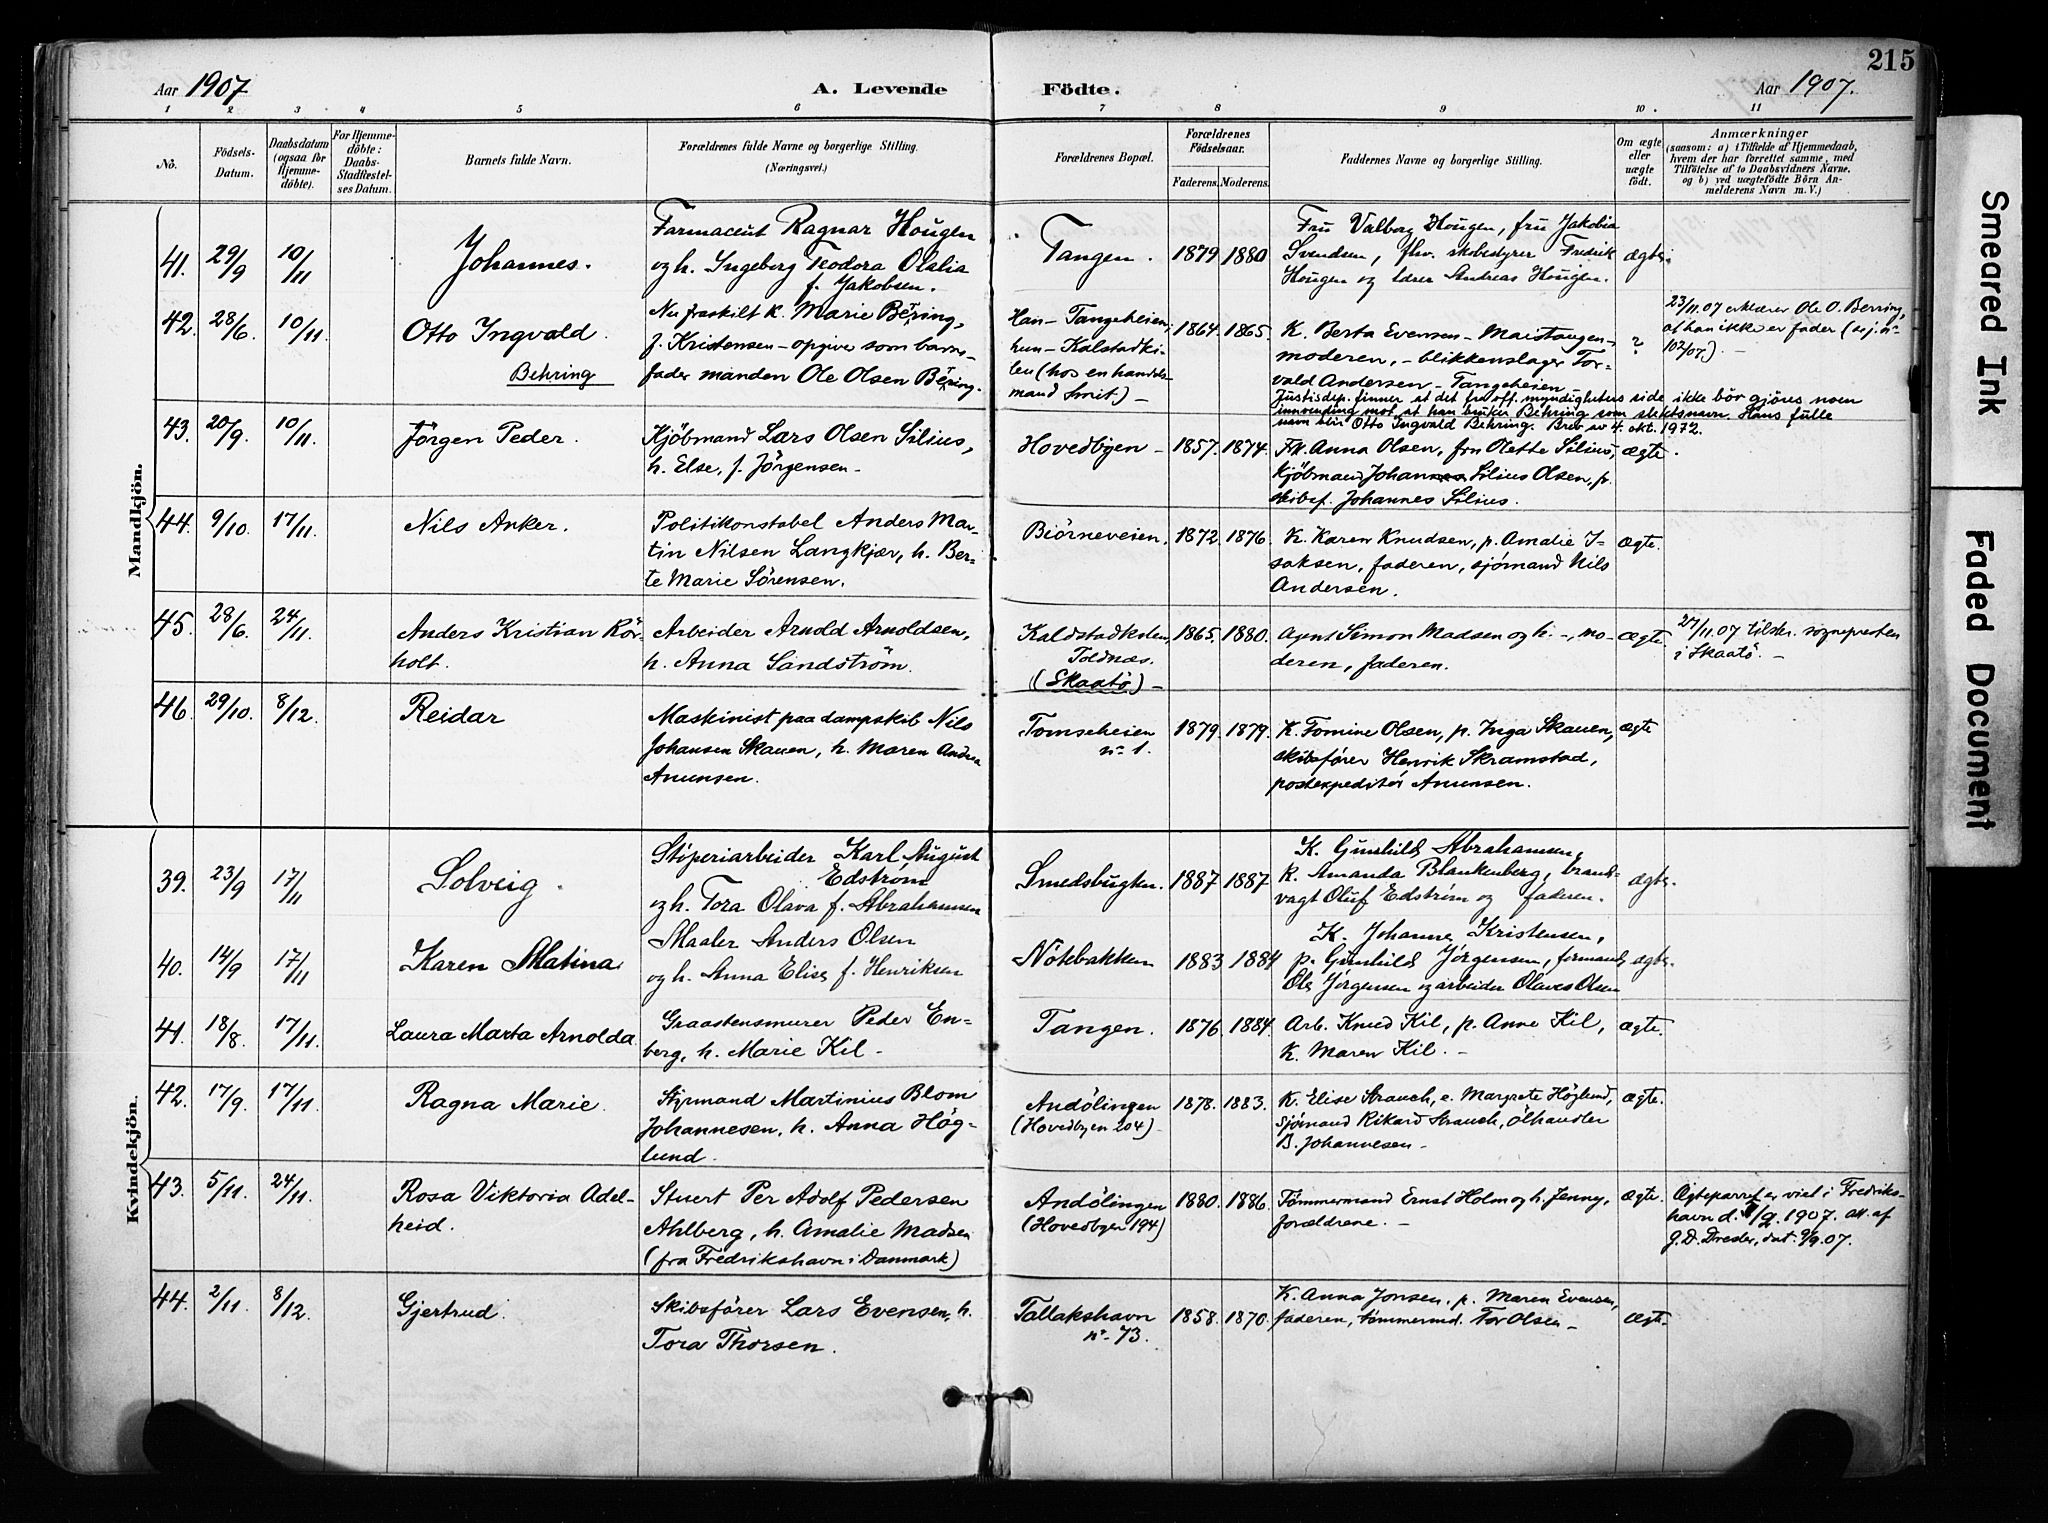 215
Aar 1907
A. Levende Födte.
Aar 1907.
1 2 3 4 5 6 7 8 9 10. 11
No.
Födsels-
Datum.
Daabsdatum
(ogsaa for
Hjemme-
döbte).
For Hjemme-
döbte:
Daabs-
Stadfæstel-
ses Datum.
Barnets fulde Navn.
Forældrenes fulde Navne og borgerlige Stilling.
(Næringsvei.)
Forældrenes Bopæl.
Forældrenes
Födselsaar.
Faderens. Moderens.
Faddernes Navne og borgerlige Stilling.
Om ægte
eller
uægte
födt.
Anmærkninger
(saasom: a) i Tilfælde af Hjemmedaab,
hvem der har forrettet samme, med
Tilföielse af to Daabsvidners Navne,
og b) ved uægtefödte Börn An-
melderens Navn m. V.)
Mandkjön.
41. 29/9 10/11 Johannes.
Farmaceut Ragnar Hougen
og h. Ingeborg Teodora Olalia
f. Jakobsen.
Tangen. 1879 1880
Fru Valborg Hougen, fru Jakobia
Svendsen, fhv. skobestyrer Fredrik
Hougen og lærer Andreas Hougen.
ægte.
42. 28/6. 10/11. Otto Ingvald
Behring
Nu fraskilt k. Marie Bering,
f. Kristensen - opgiver som barne-
fader manden Ole Olsen Bering.
Han - Tangeheien,
hun - Kalstadki-
len (hos en handels-
mand Smit) -
1864. 1865.
K. Berta Evensen - Maistangen -
moderen, - blikkenslager Tor-
vald Andersen - Tangeheien
?
23/11.07 erklærer Ole O. Berring,
at han ikke er fader (sj. nr
102/07). -
Justisdep. finner at det fra off. myndigheters side ikke bör gjöres noen
innvending mot at han bruker Behring som slektsnavn. Hans fulle
navn blir Otto Ingvald Behring. Brev av 4. okt. 1972.
43. 20/9. 10/11. Jörgen Peder.
Kjöbmand Lars Olsen Silius,
h. Else, f. Jörgensen -
Hovedbyen - 1857. 1874.
Frk. Anna Olsen, fru Olette Silius,
kjöbmand Johannes Silius Olsen, p.
skibsf. Johannes Silius.
ægte
44. 9/10. 17/11. Nils Anker.
Politikonstabel Anders Mar-
tin Nilsen Langkjær, h. Ber-
te Marie Sörensen.
Biörneveien. 1872. 1876.
K. Karen Knudsen, p. Amalie I-
saksen, faderen, sjömand Nils
Andersen.
ægte.
45. 28/6. 24/11. Anders Kristian Rör-
holt.
Arbeider Arnold Arnoldsen,
h. Anna Sandström.
Kaldstadkelen,
Toldnæs.
(Skaatö) -
1865. 1880.
Agent Simon Madsen og h. -, mo-
deren, faderen.
ægte.
27/11.07 tilskr. sognepresten
i Skaatö. -
46. 29/10. 8/12. Reidar
Maskinist paa dampskib Nils
Johansen Skauen, h. Maren Andrea
Anunsen.
Tomseheien
nr 1.
1879. 1879.
K. Tomine Olsen, p. Inga Skauen,
skibsförer Henrik Skramstad,
postexpeditör Anunsen.
ægte
Kvindekjön.
39. 23/9 17/11 Solveig.
Stöperiarbeider Karl August
Edström
og h. Tora Olava f. Abrahamsen
Smedsbugten. 1887 1887
K. Gunhild Abrahamsen,
K. Amanda Blankenberg, brand-
vagt Oluf Edström og faderen.
ægte.
40. 14/9 17/11 Karen Matina
Maler Anders Olsen
og h. Anna Elise f. Henriksen
Nötebakken 1883 1884
K. Johanne Kristensen,
p. Gunhild Jörgensen, formand
Ole Jörgensen og arbeider Olaves Olsen
ægte.
41. 18/8. 17/11. Laura Marta Arnolda
Graastensmurer Peder En-
berg, h. Marie Kil -
Tangen. 1876. 1884.
Arb. Knud Kil, p. Anne Kil,
K. Maren Kil. -
ægte.
42. 17/9. 17/11. Ragna Marie.
Styrmand Martinius Blom
Johannesen, h. Anna Hög-
lund.
Andölingen
(Hovedbyen 204) -
1878. 1883.
K. Elise Strauch, e. Margrete Höglund,
sjömand Rikard Strauch, ölhandler
B. Johannesen -
ægte.
43. 5/11. 24/11. Rosa Viktoria Adel-
heid.
Stuert Per Adolf Pedersen
Ahlberg, h. Amalie Madsen
(fra Fredrikshavn i Danmark)
Andölingen
(Hovedbyen 194)
1880. 1886.
Tömmermand Ernst Holm og h. Jenny,
forældrene. -
Ægte.
Ægteparret er viet i Fredriks-
havn d. /9. 1907. att. af
J. D. Dreder, dat. 9/9.07.
44. 2/11. 8/12. Gjertrud.
Skibsförer Lars Evensen, h.
Tora Thorsen.
Tallakshavn
nr 73.
1858. 1870.
K. Anna Jonsen, p. Maren Evensen,
faderen, tömmermd. Tor Olsen -
Ægt.
Smeared Ink
Faded Document